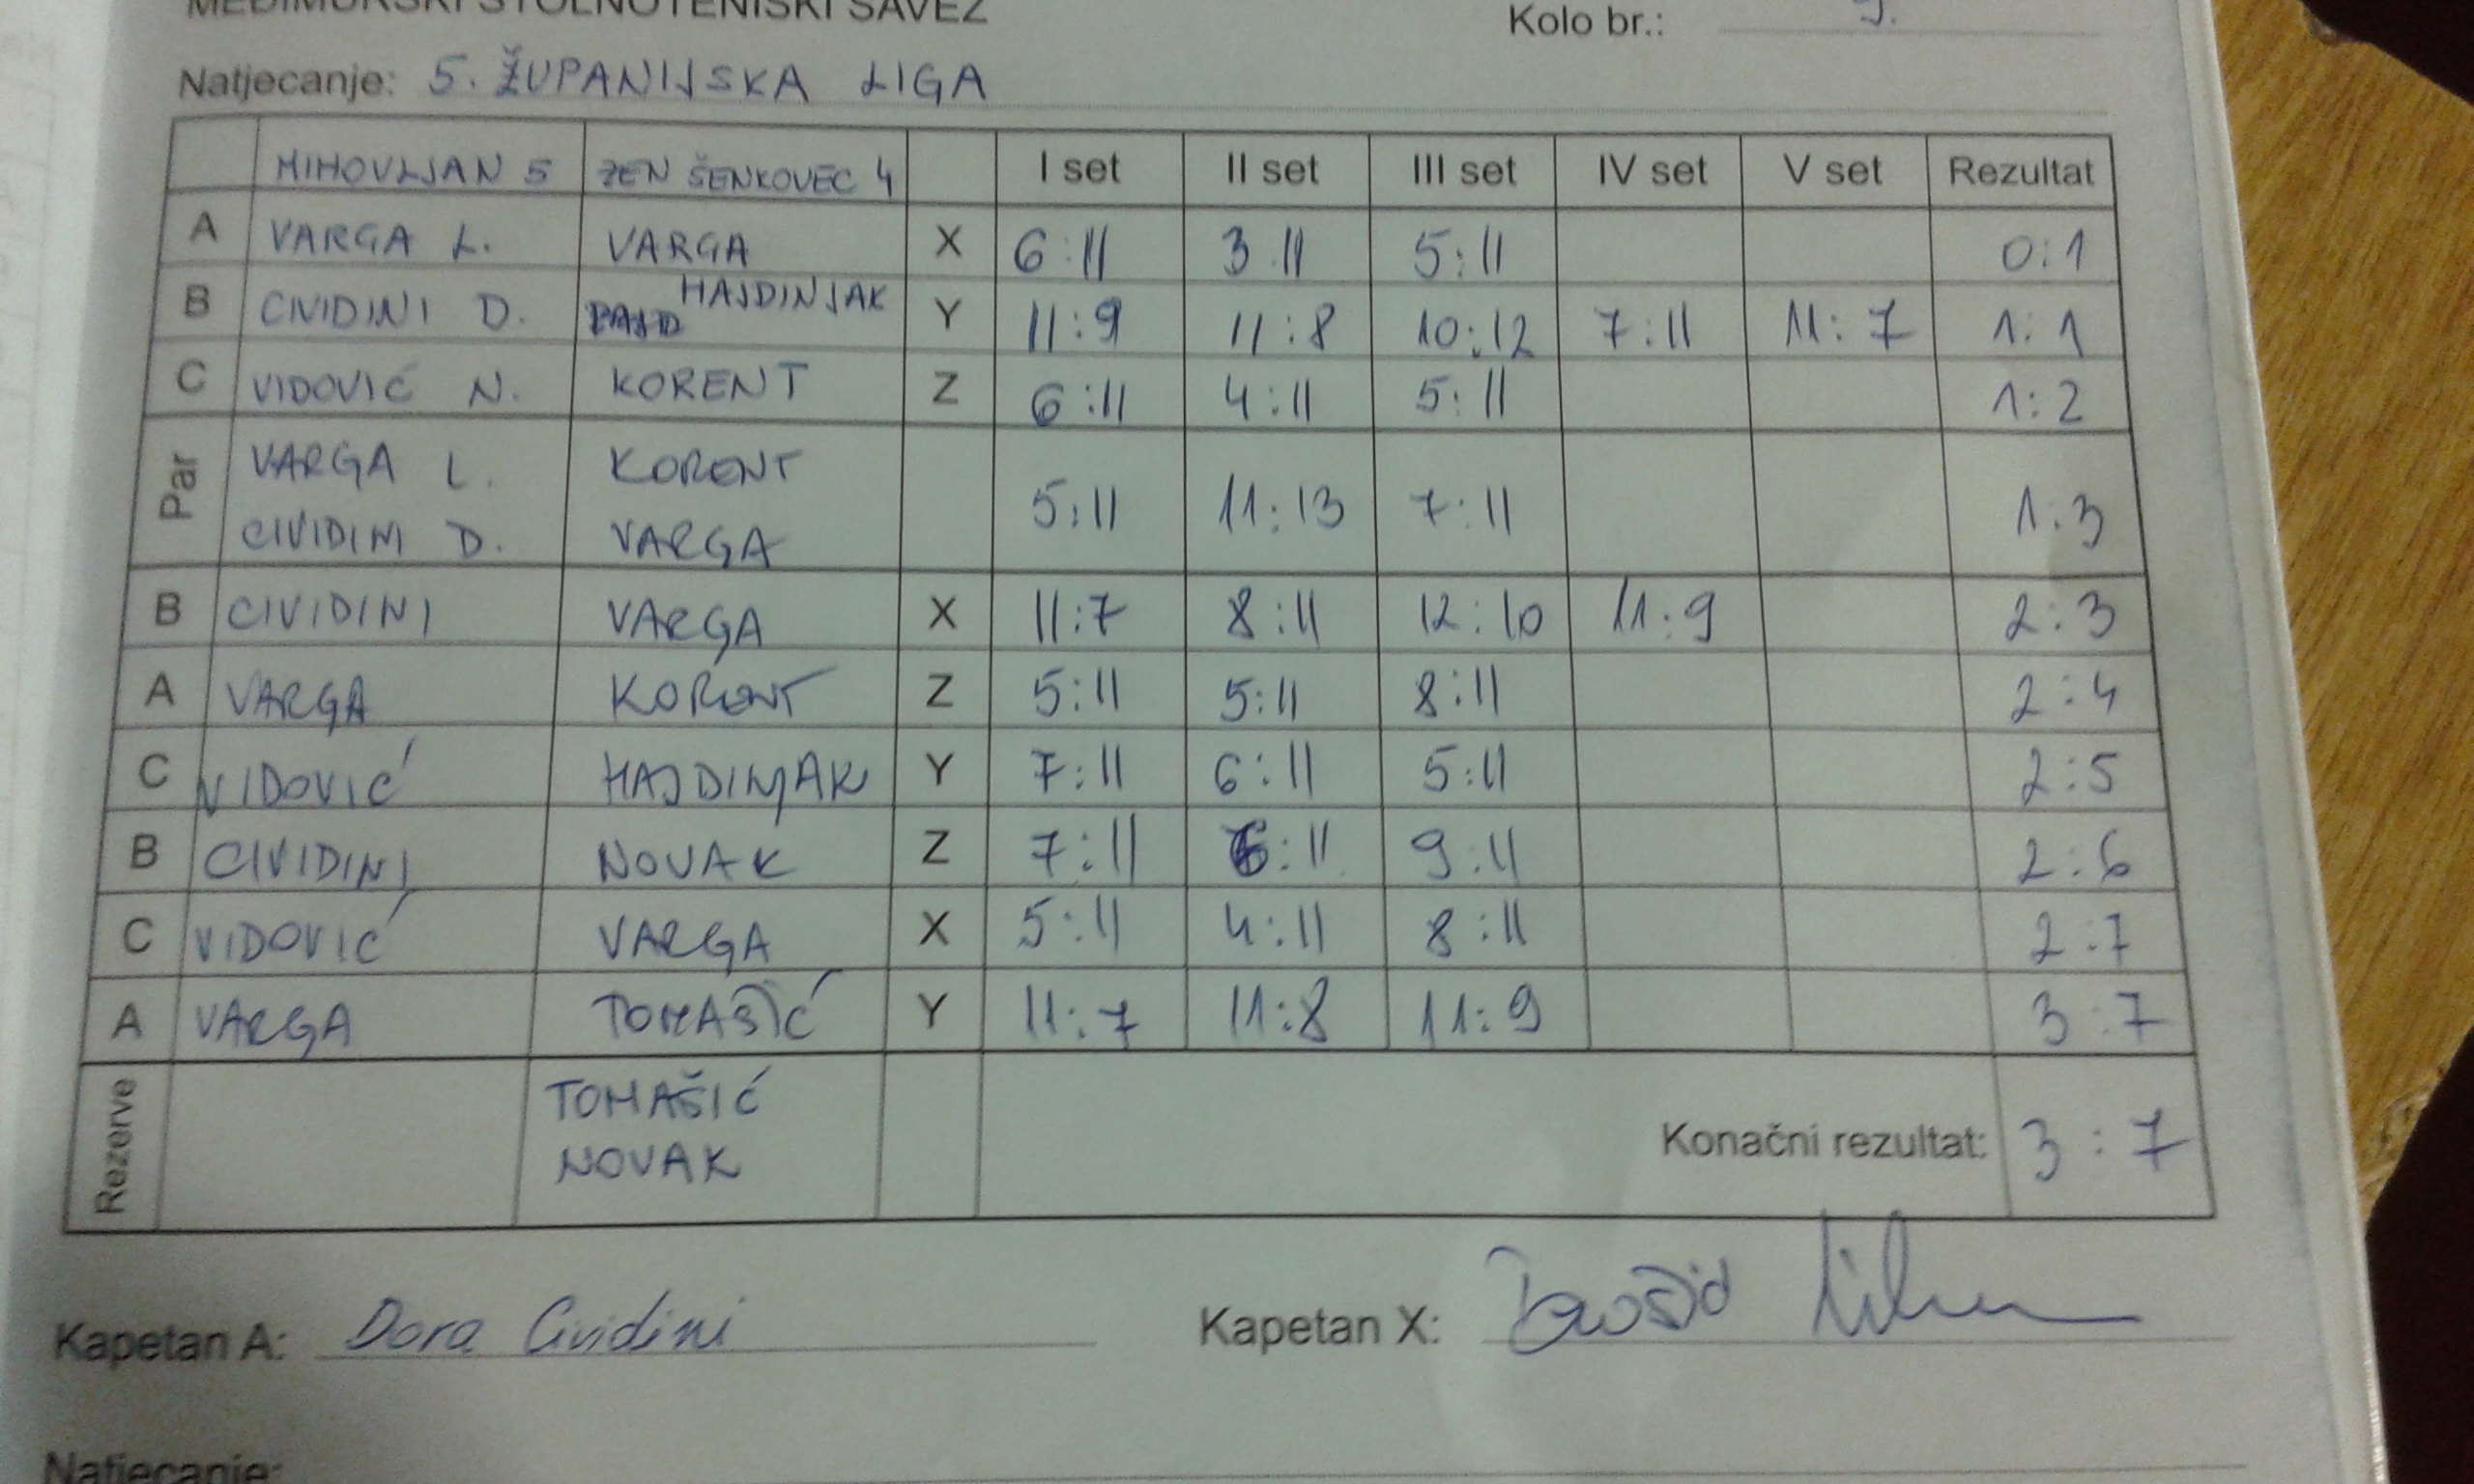 MEĐIMURSKI STOLNOTENISKI SAVEZ
Kolo br.:
Natjecanje: 5. ŽUPANIJSKA LIGA
MIHOVLJAN 5 ŽEN ŠENKOVEC 4 I set II set III set IV set V set Rezultat
A VARGA L. VARGA X 6:11 3:11 5:11 0:1
B CIVIDINI D. HAJDINJAK Y 11:9 11:8 10:12 7:11 11:7 1:1
C VIDOVIĆ N. KORENT Z 6:11 4:11 5:11 1:2
Par VARGA L. KORENT 5:11 11:13 7:11 1:3
CIVIDINI D. VARGA
B CIVIDINI VARGA X 11:7 8:11 12:10 11:9 2:3
A VARGA KORENT Z 5:11 5:11 8:11 2:4
C VIDOVIĆ HAJDINJAK Y 7:11 6:11 5:11 2:5
B CIVIDINI NOVAK Z 7:11 6:11 9:11 2:6
C VIDOVIĆ VARGA X 5:11 4:11 8:11 2:7
A VARGA TOMAŠIĆ Y 11:7 11:8 11:9 3:7
Rezerve TOMAŠIĆ
NOVAK
Konačni rezultat: 3:7
Kapetan A: Dora Cividini
Kapetan X:
Natjecanje: